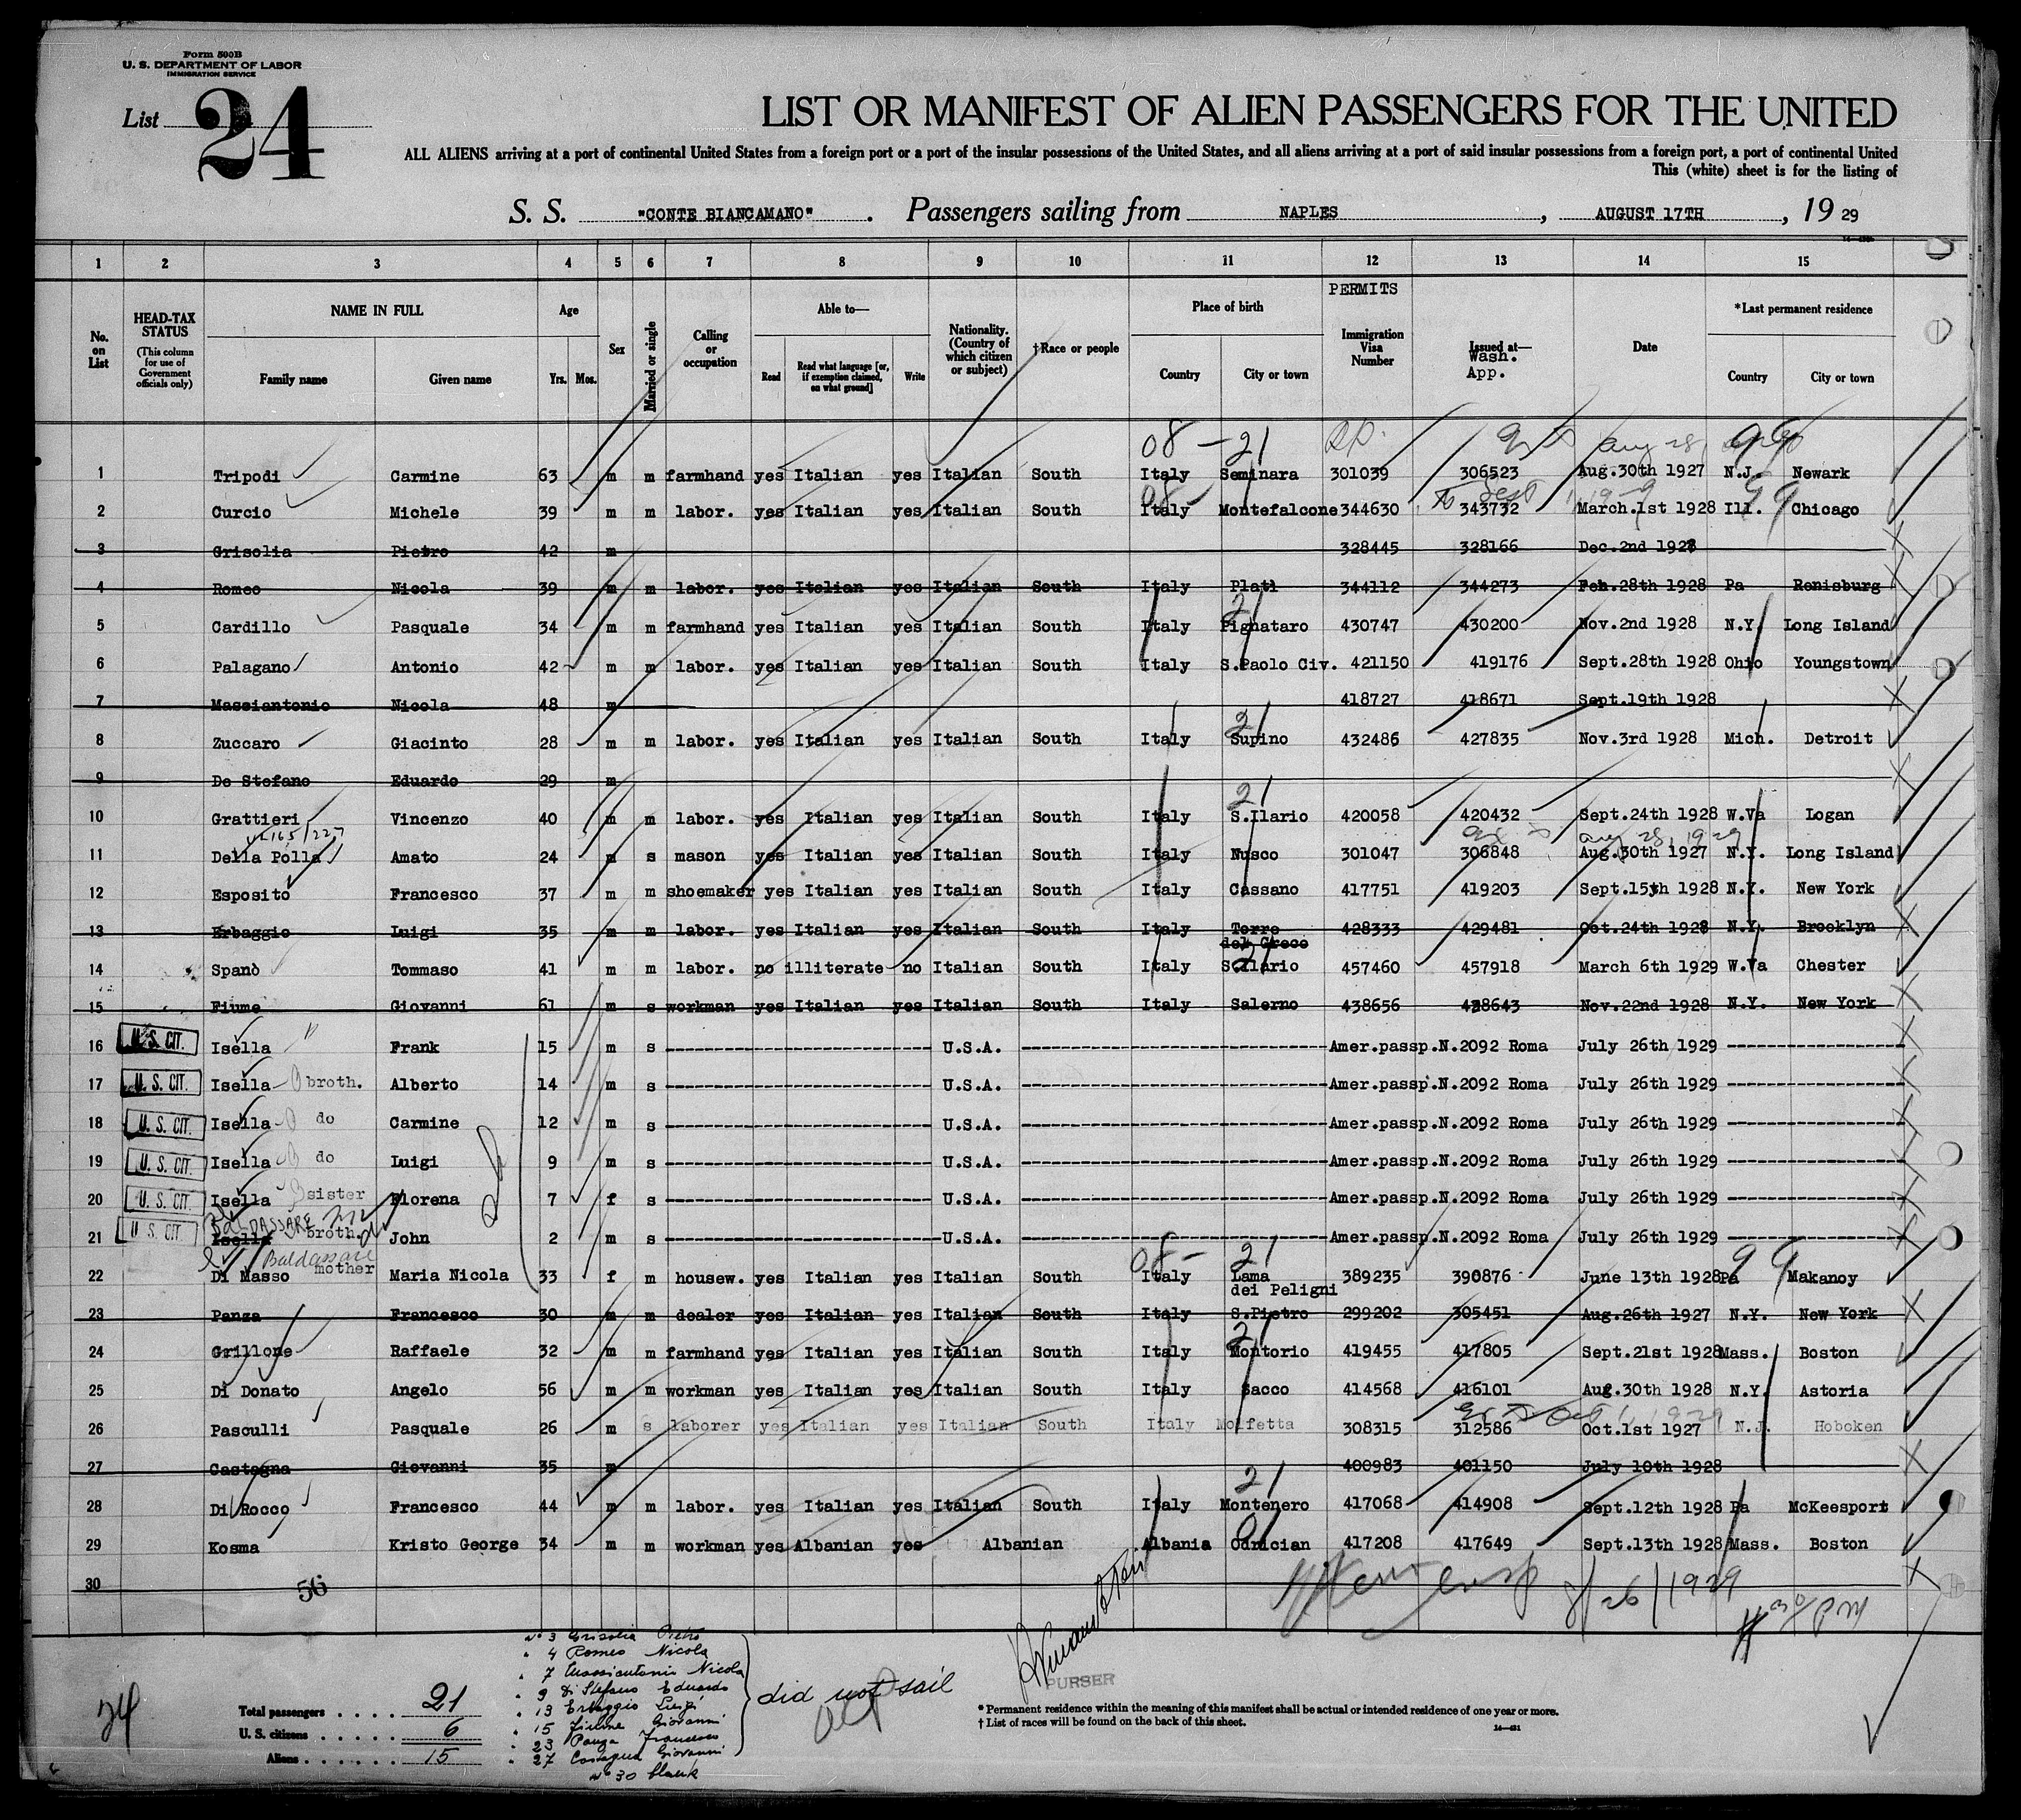 Form 500B
U. S. DEPARTMENT OF LABOR
IMMIGRATION SERVICE
List 24
LIST OR MANIFEST OF ALIEN PASSENGERS FOR THE UNITED
ALL ALIENS arriving at a port of continental United States from a foreign port or a port of the insular possessions of the United States, and all aliens arriving at a port of said insular possessions from a foreign port, a port of continental United
This (white) sheet is for the listing of
S. S. "CONTE BIANCAMANO". Passengers sailing from NAPLES, AUGUST 17TH, 19 29
1 2 3 4 5 6 7 8 9 10 11 12 13 14 15
No. on List
HEAD-TAX STATUS (This column for use of Government officials only)
NAME IN FULL
Family name Given name
Age
Yrs. Mos.
Sex
Married or single
Calling or occupation
Able to—
Read Read what language [or, if exemption claimed, on what ground] Write
Nationality. (Country of which citizen or subject)
†Race or people
Place of birth
Country City or town
PERMITS
Immigration Visa Number
Issued at—
Wash. App.
Date
*Last permanent residence
Country City or town
08 - 21 Aug 28, 99
1 Tripodi Carmine 63 m m farmhand yes Italian yes Italian South Italy Seminara 301039 306523 Aug.30th 1927 N.J. Newark
2 Curcio Michele 39 m m labor. yes Italian yes Italian South Italy Montefalcone 344630 343732 March.1st 1928 Ill. Chicago
3 Grisolia Pietro 42 m 328445 328166 Dec.2nd 1928
4 Romeo Nicola 39 m m labor. yes Italian yes Italian South Italy Plati 344112 344273 Feb.28th 1928 Pa Renisburg
5 Cardillo Pasquale 34 m m farmhand yes Italian yes Italian South Italy Pignataro 430747 430200 Nov.2nd 1928 N.Y. Long Island
6 Palagano Antonio 42 m m labor. yes Italian yes Italian South Italy S.Paolo Civ. 421150 419176 Sept.28th 1928 Ohio Youngstown
7 Massiantonio Nicola 48 m 418727 418671 Sept.19th 1928
8 Zuccaro Giacinto 28 m m labor. yes Italian yes Italian South Italy Supino 432486 427835 Nov.3rd 1928 Mich. Detroit
9 De Stefano Eduardo 29 m
10 Grattieri Vincenzo 40 m m labor. yes Italian yes Italian South Italy S.Ilario 420058 420432 Sept.24th 1928 W.Va Logan
Aug 28, 1929
11 Della Polla Amato 24 m s mason yes Italian yes Italian South Italy Nusco 301047 306848 Aug.30th 1927 N.Y. Long Island
12 Esposito Francesco 37 m m shoemaker yes Italian yes Italian South Italy Cassano 417751 419203 Sept.15th 1928 N.Y. New York
13 Erbaggio Luigi 35 m m labor. yes Italian yes Italian South Italy Torre del Greco 428333 429481 Oct.24th 1928 N.Y. Brooklyn
14 Spanò Tommaso 41 m m labor. no illiterate no Italian South Italy S.Ilario 457460 457918 March 6th 1929 W.Va Chester
15 Fiume Giovanni 61 m s workman yes Italian yes Italian South Italy Salerno 438656 428643 Nov.22nd 1928 N.Y. New York
16 U. S. CIT. Isella Frank 15 m s U.S.A. Amer.passp.N.2092 Roma July 26th 1929
17 U. S. CIT. Isella broth. Alberto 14 m s U.S.A. Amer.passp.N.2092 Roma July 26th 1929
18 U. S. CIT. Isella do Carmine 12 m s U.S.A. Amer.passp.N.2092 Roma July 26th 1929
19 U. S. CIT. Isella do Luigi 9 m s U.S.A. Amer.passp.N.2092 Roma July 26th 1929
20 U. S. CIT. Isella sister Florena 7 f s U.S.A. Amer.passp.N.2092 Roma July 26th 1929
BALDASSARE
21 U. S. CIT. Isella broth. John 2 m s U.S.A. Amer.passp.N.2092 Roma July 26th 1929
Baldassare
22 Di Masso mother Maria Nicola 33 f m housew. yes Italian yes Italian South Italy Lama dei Peligni 389235 390876 June 13th 1928 Pa Makanoy
23 Panza Francesco 30 m m dealer yes Italian yes Italian South Italy S.Pietro 299202 305451 Aug.26th 1927 N.Y. New York
24 Grillone Raffaele 32 m m farmhand yes Italian yes Italian South Italy Montorio 419455 417805 Sept.21st 1928 Mass. Boston
25 Di Donato Angelo 56 m m workman yes Italian yes Italian South Italy Sacco 414568 416101 Aug.30th 1928 N.Y. Astoria
26 Pasculli Pasquale 26 m s laborer yes Italian yes Italian South Italy Molfetta 308315 312586 Oct.1st 1927 N.J. Hoboken
27 Castagna Giovanni 35 m 400983 401150 July 10th 1928
28 Di Rocco Francesco 44 m m labor. yes Italian yes Italian South Italy Montenero 417068 414908 Sept.12th 1928 Pa McKeesport
29 Kosma Kristo George 34 m m workman yes Albanian yes Albanian Albania Odrician 417208 417649 Sept.13th 1928 Mass. Boston
30
56
8/26/1929
No 3 Grisolia Pietro
" 4 Romeo Nicola
" 7 Massiantonio Nicola
" 9 Di Stefano Eduardo
" 13 Erbaggio Luigi
" 15 Fiume Giovanni
" 23 Panza Francesco
" 27 Castagna Giovanni
No 30 blank
did not sail
PURSER
24
Total passengers . . . . 21
U. S. citizens . . . . . 6
Aliens . . . . . . 15
* Permanent residence within the meaning of this manifest shall be actual or intended residence of one year or more.
† List of races will be found on the back of this sheet.
14—431